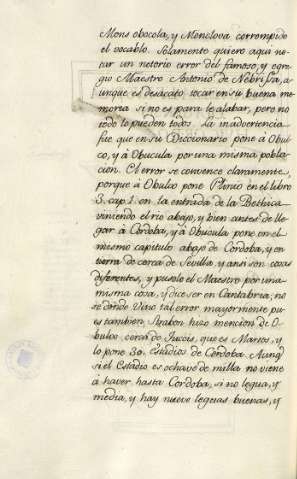 Mons obocola, y Monclova corrompido
el vocablo. Solamente quiero aqui no-
tar un notorio error del famoso, y egre-
gio Maestro Antonio de Nebrissa, a-
unque es desacato tocar en su buena me-
moria si no es para le alabar, pero no
todo lo pueden todos. La inadvertencia
fue que en su Diccionario pone á Obul-
co, y á Obucula por una misma pobla-
cion. El error se convence claramente,
porque á Obulco pone Plinio en el libro
3. cap. 1. en la entrada de la Bethica
viniendo el rio abajo, y bien antes de lle-
gar á Cordoba, y á Obucula pone en el
mesmo capitulo abajo de Cordoba, y en
tierra de cerca de Sevilla, y ansi son cosas
diferentes, y pusolo el Maestro por una
misma cosa, y dice ser en Cantabria; no
se dónde vino tal error mayormente pu-
es tambien Strabon hizo mencion de O-
bulco cerca de Tuccis, que es Martos, y
lo pone 30. estadios de Cordoba. Aunq
si el Estadio es ochavo de milla no viene
á haver hasta Cordoba, si no legua, y
media, y hay nueve leguas buenas, y